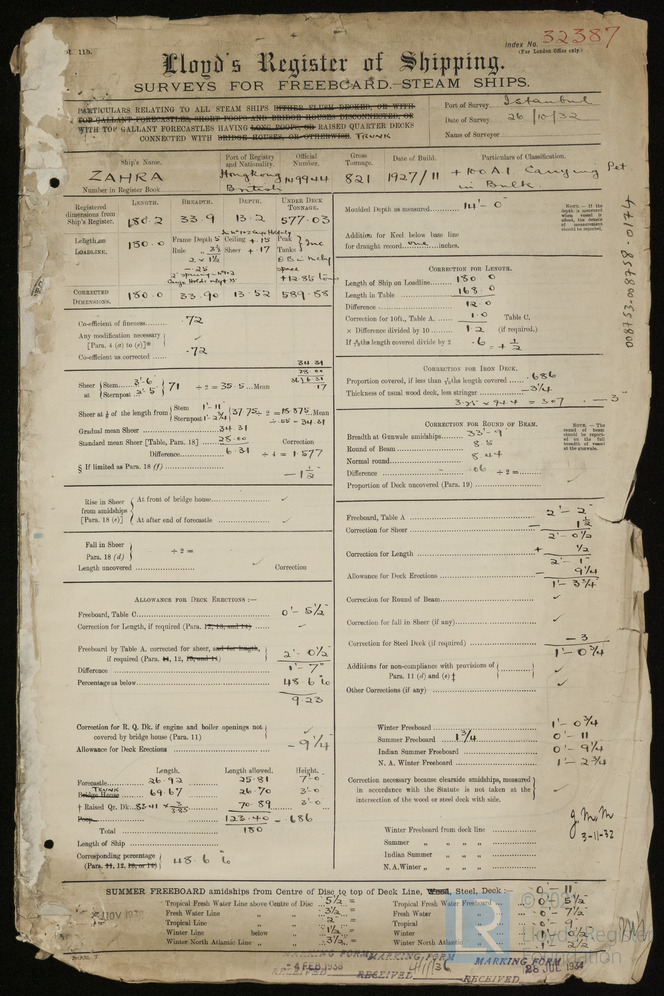 Index No. 32387
(For London Office only.)
Lloyd's Register of Shipping.
SURVEYS FOR FREEBOARD.-STEAM SHIPS.
PARTICULARS RELATING TO ALL STEAM SHIPS EITHER FLUSH DECKED, OR WITH
TOP GALLANT FORECASTLES, SHORT POOPS AND BRIDGE HOUSES DISCONNECTED, OR
WITH TOP GALLANT FORECASTLES HAVING LONG POOPS, OR RAISED QUARTER DECKS
CONNECTED WITH BRIDGE HOUSES, OR OTHERWISE TRUNK
Port of Survey Istanbul
Date of Survey 26/10/32
Name of Surveyor
Ship's Name.
ZAHRA
Number in Register Book
Port of Registry and Nationality.
Hongkong
British
Official Number.
149944
Gross Tonnage.
821
Date of Build.
1927/11
Particulars of Classification.
+100A1 Carrying Pet
in Bulk.
LENGTH. BREADTH. DEPTH. UNDER DECK TONNAGE.
Registered dimensions from Ship's Register. 180.2 33.9 13.2 577.03
Length on LOADLINE. 180.0
Frame Depth 5 Ceiling +.15 Peak
Rule Sheer +.17 Tanks
CORRECTED DIMENSIONS. 180.0 33.90 13.52 589.88
Co-efficient of fineness .72
Any modification necessary
[Para. 4 (a) to (e)]*
Co-efficient as corrected .72
Sheer at Stem 3'-6 Sternpost 2'-5 71 ÷ 2 = 35.5 Mean
Sheer at 1/8 of the length from Stem 1'-11 Sternpost 37.75 ÷ 2 = 18.875 Mean
Gradual mean Sheer 34.31
Standard mean Sheer [Table, Para. 18] 28.00 Correction
Difference 6.31 ÷ 4 = 1.577
§ If limited as Para. 18 (f) -1½
Rise in Sheer from amidships [Para. 18 (e)]
At front of bridge house
At after end of forecastle
Fall in Sheer
Para. 18 (d) ÷ 2 =
Length uncovered Correction
ALLOWANCE FOR DECK ERECTIONS :-
Freeboard, Table C 0'-5½
Correction for Length, if required (Para. 12, 13, and 14)
Freeboard by Table A. corrected for sheer, and for length,
if required (Para. 11, 12, 13, and 14) 2'-0½
Difference 1'-7
Percentage as below 48.6%
9.23
Correction for R. Q. Dk. if engine and boiler openings not
covered by bridge house (Para. 11)
Allowance for Deck Erections -9¼
Length. Length allowed. Height.
Forecastle 26.92 25.81 7'-0
TRUNK
Bridge House 69.67 26.70 3'-0
† Raised Qr. Dk. 83.41 70.89 3'-0
Poop
Total 123.40 = .686
Length of Ship 180
Corresponding percentage
(Para. 11, 12, 13, or 14) 48.6%
Moulded Depth as measured 14'-0
Addition for Keel below base line
for draught record one inches.
NOTE.—If the depth is measured when vessel is afloat, the details of measurement should be reported.
CORRECTION FOR LENGTH.
Length of Ship on Loadline 180.0
Length in Table 168.0
Difference 12.0
Correction for 10ft., Table A. 1.0 Table C.
× Difference divided by 10 1.2 (if required.)
If 6/10ths length covered divide by 2 .6 = +½
CORRECTION FOR IRON DECK.
Proportion covered, if less than 7/10ths length covered .686
Thickness of usual wood deck, less stringer 3¼
3.25 × .944 = 3.07 -3
CORRECTION FOR ROUND OF BEAM.
Breadth at Gunwale amidships 33'-9
Round of Beam 8.5
Normal round 8.44
Difference .06 ÷ 2 =
Proportion of Deck uncovered (Para. 19)
NOTE.—The round of beam should be reported on the full breadth of vessel at the gunwale.
Freeboard, Table A 2'-2
Correction for Sheer - 1½
2'-0½
Correction for Length + ½
2'-1
Allowance for Deck Erections - 9¼
1'-3¾
Correction for Round of Beam
Correction for fall in Sheer (if any)
Correction for Steel Deck (if required) -3
1'-0¾
Additions for non-compliance with provisions of
Para. 11 (d) and (e) ‡
Other Corrections (if any)
Winter Freeboard 1'-0¾
Summer Freeboard 1¾ 0'-11
Indian Summer Freeboard 0'-9¼
N. A. Winter Freeboard 1'-2¾
Correction necessary because clearside amidships, measured
in accordance with the Statute is not taken at the
intersection of the wood or steel deck with side.
Winter Freeboard from deck line
Summer " " " "
Indian Summer " " "
N.A. Winter " " " "
3-11-32
008753-008758-0174
SUMMER FREEBOARD amidships from Centre of Disc to top of Deck Line, Wood, Steel, Deck :- 0'-11
Tropical Fresh Water Line above Centre of Disc 5½ Tropical Fresh Water Freeboard 0-5½
Fresh Water Line " " 3½ Fresh Water 0-7½
Tropical Line " " 2 Tropical 0-9
Winter Line below " 1½ Winter
Winter North Atlantic Line " " 3½ Winter North Atlantic
MARKING FORM RECEIVED
-4 FEB 1938
MARKING FORM RECEIVED
MARKING FORM RECEIVED
28 JUL 1934
LR
Lloyd's Register
Foundation